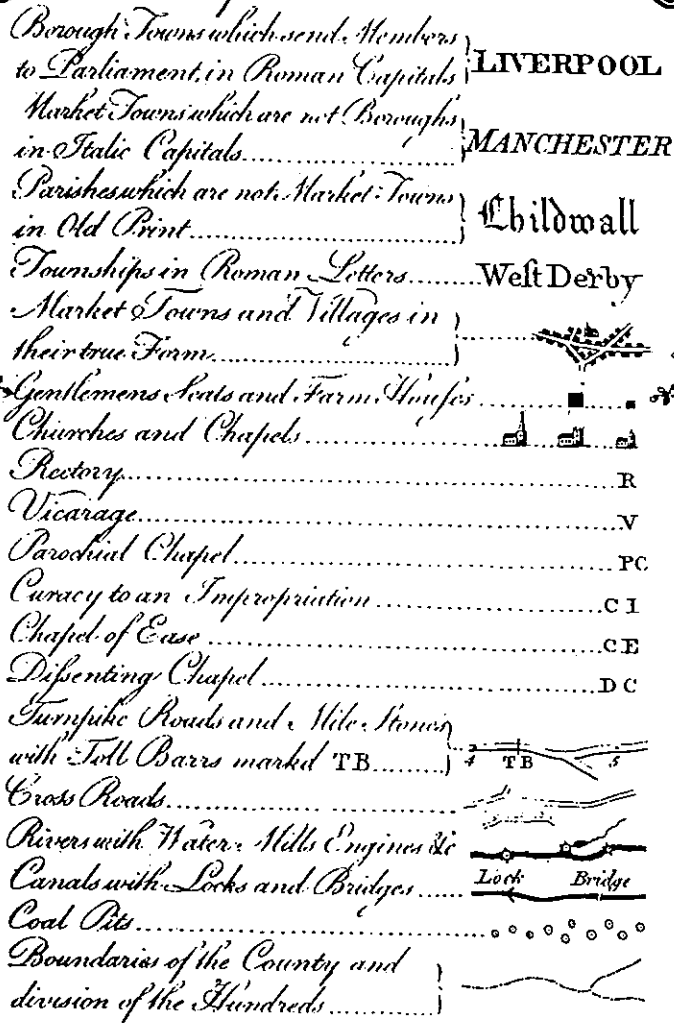 Borough Towns which send Members
to Parliament, in Roman Capitals LIVERPOOL
Market Towns which are not Boroughs
in Italic Capitals MANCHESTER
Parishes which are not Market Towns
in Old Print Childwall
Townships in Roman Letters Weſt Derby
Market Towns and Villages in
their true Form
Gentlemens Seats and Farm Houſes
Churches and Chapels
Rectory R
Vicarage V
Parochial Chapel PC
Curacy to an Impropriation C I
Chapel of Ease C E
Diſsenting Chapel D C
Turnpike Roads and Mile Stones
with Toll Barrs markd TB 4 TB 5
Cross Roads
Rivers with Water Mills Engines &c
Canals with Locks and Bridges Lock Bridge
Coal Pits
Boundaries of the County and
division of the Hundreds